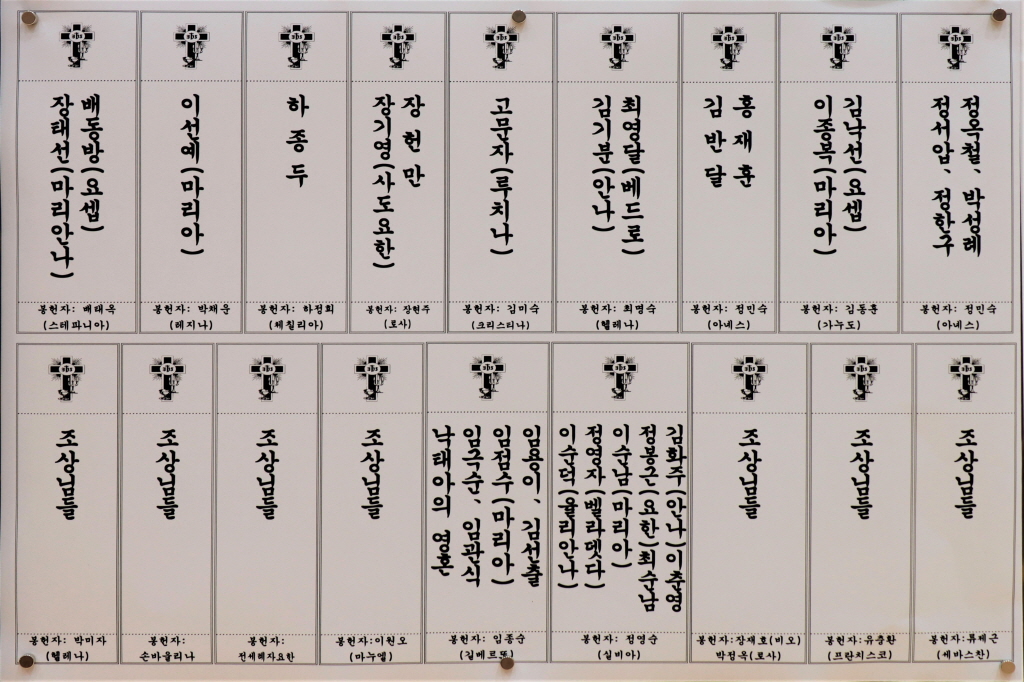 배동방(요셉)
장태선(마리안나)
봉헌자: 배태옥
(스테파니아)
이선예(마리아)
봉헌자: 박재운
(레지나)
하종두
봉헌자: 하정희
(체칠리아)
장헌만
장기영(사도요한)
봉헌자: 장현주
(로사)
고문자(루치나)
봉헌자: 김미숙
(크리스티나)
최영달(베드로)
김기분(안나)
봉헌자: 최명숙
(헬레나)
홍재훈
김반달
봉헌자: 정민숙
(아녜스)
김낙선(요셉)
이종복(마리아)
봉헌자: 김동훈
(가누도)
정옥철、박성례
정서암、정한구
봉헌자: 정민숙
(아녜스)
조상님들
봉헌자: 박미자
(헬레나)
조상님들
봉헌자:
손바울리나
조상님들
봉헌자:
전세례자요한
조상님들
봉헌자:이원오
(마누엘)
임용이、김선출
임점수(마리아)
임극순、임관식
낙태아의 영혼
봉헌자: 임종순
(길베르또)
김화주(안나)이춘영
정봉근(요한)최순남
이순남(마리아)
정영자(벨라뎃다)
이순덕(율리안나)
봉헌자: 정영순
(실비아)
조상님들
봉헌자:장재호(비오)
박정옥(로사)
조상님들
봉헌자:유충환
(프란치스코)
조상님들
봉헌자:류제근
(세바스찬)